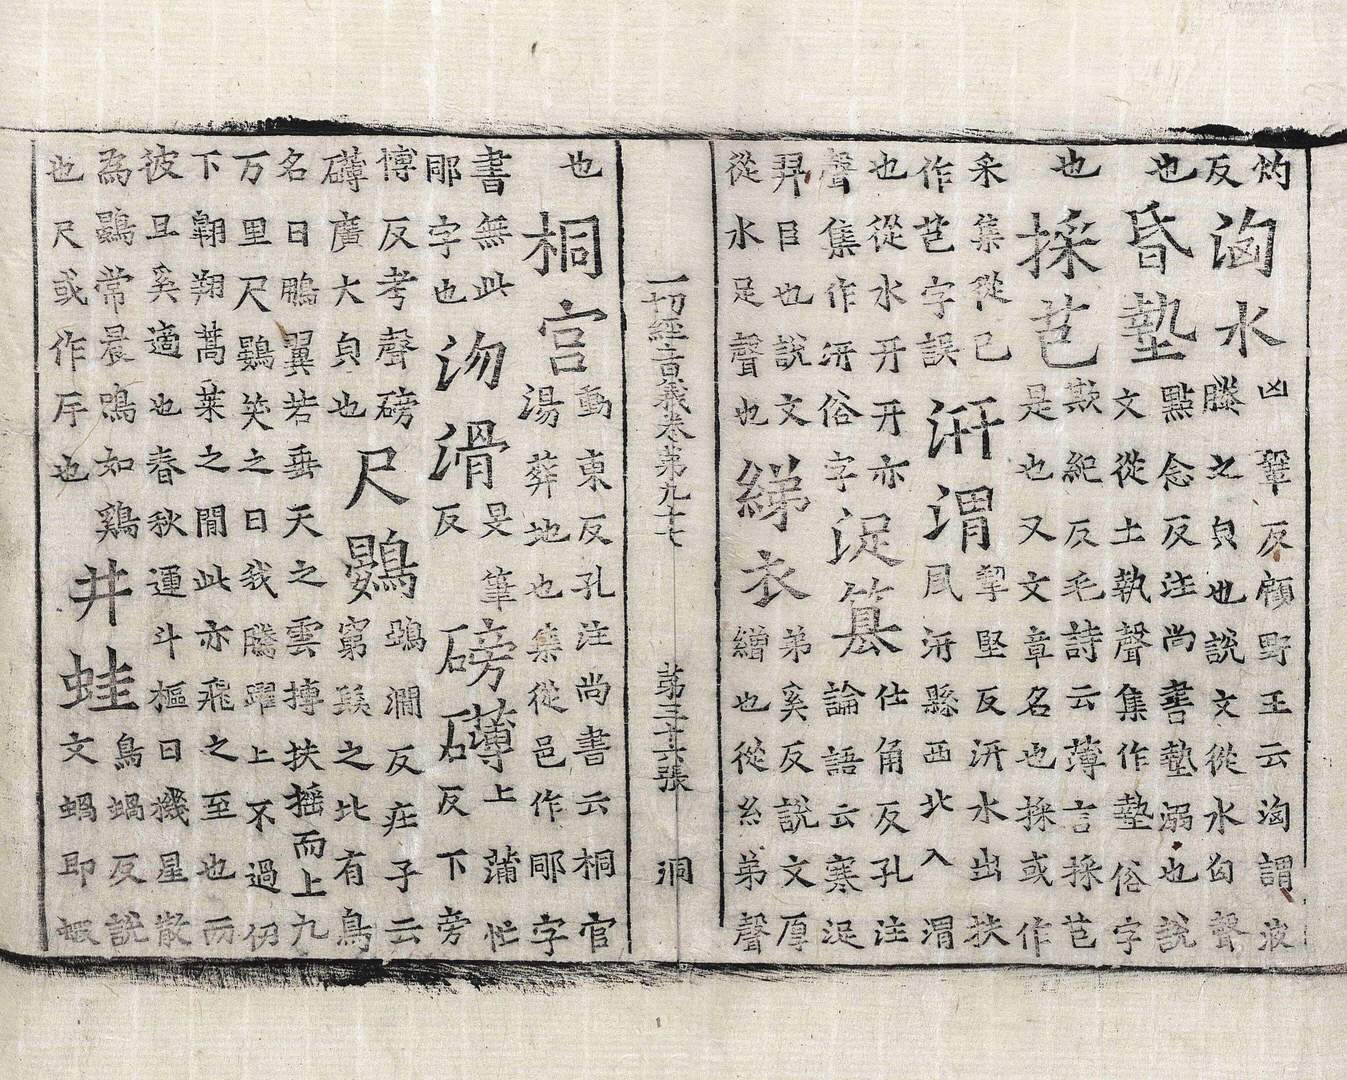 灼
反
洶水
凶鞏反顧野王云洶謂液
滕之皃也說文從水匈聲
也
昏墊
點念反注尚書墊溺也說
文從土執聲集作墊俗字
也
採芑
欺紀反毛詩云薄言採芑
是也又文章名也採或作
采集從己
作芑字誤
汧渭
挈堅反汧水出扶
風汧縣西北入渭
也從水幵幵亦
聲集作汧俗字
浞簒
仕角反孔注
論語云寒浞
羿臣也說文
從水足聲也
綈衣
弟奚反說文厚
繒也從糸弟聲
一切經音義卷第九十七 第三十六張 洞
也
桐宮
動東反孔注尚書云桐宮
湯葬地也集從邑作䣑字
書無此
䣑字也
沕滑
旻筆
反
磅礴
上蒲忙
反下旁
博反考聲磅
礴廣大皃也
尺鷃
鴳澗反庄子云
窮髮之北有鳥
名曰鵬翼若垂天之雲摶扶摇而上九
万里尺鷃笑之曰我騰躍上不過仞
下翺翔蒿萊之閒此亦飛之至也而
彼且奚適也春秋運斗樞曰機星散
為鷃常晨鳴如鷄
也尺或作斥也
井蛙
烏蝸反說
文蝸即蝦